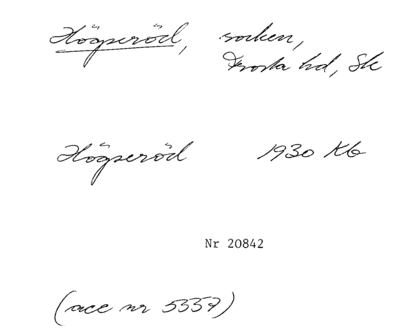 Högseröd, socken,
Frosta hd, Sk
Högseröd 1930 Kb
Nr 20842
(acc nr 5557)